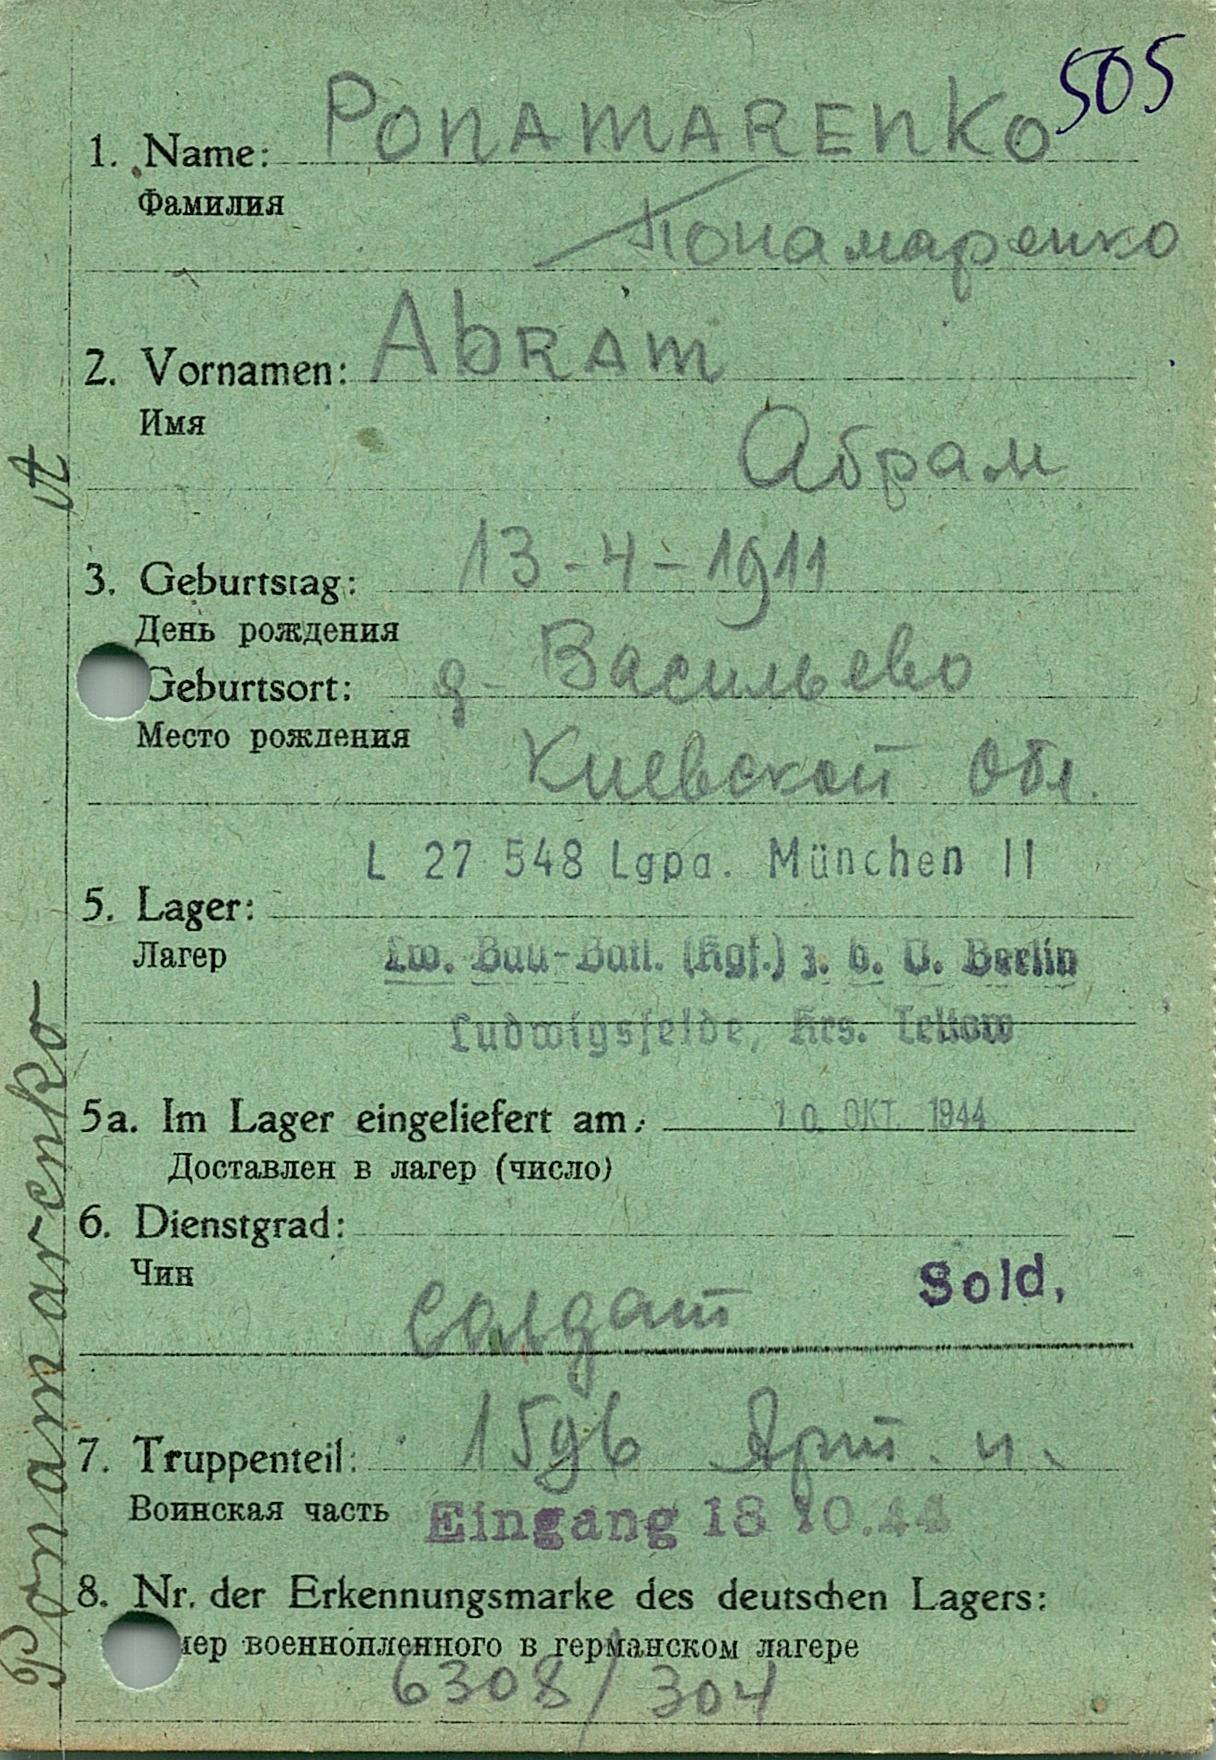 505
1. Name: PONAMARENKO
Фамилия
Понамаренко
2. Vornamen: AbRAM
Имя
Абрам
3. Geburtstag: 13-4-1911
День рождения
Geburtsort: д- Васильево
Место рождения
Киевской Обл.
L 27 548 Lgpa. München II
5. Lager:
Лагер
Lw. Bau-Batl. (Kgf.) z. b. V. Berlin
Ludwigsfelde, Krs. Teltow
5a. Im Lager eingeliefert am: 10. OKT. 1944
Доставлен в лагер (число)
6. Dienstgrad:
Чин
Sold.
Солдат
7. Truppenteil: Арт. п.
Воинская часть
Eingang 18 10.44
8. Nr. der Erkennungsmarke des deutschen Lagers:
мер военнопленного в германском лагере
6308/304
Ponamarenko A